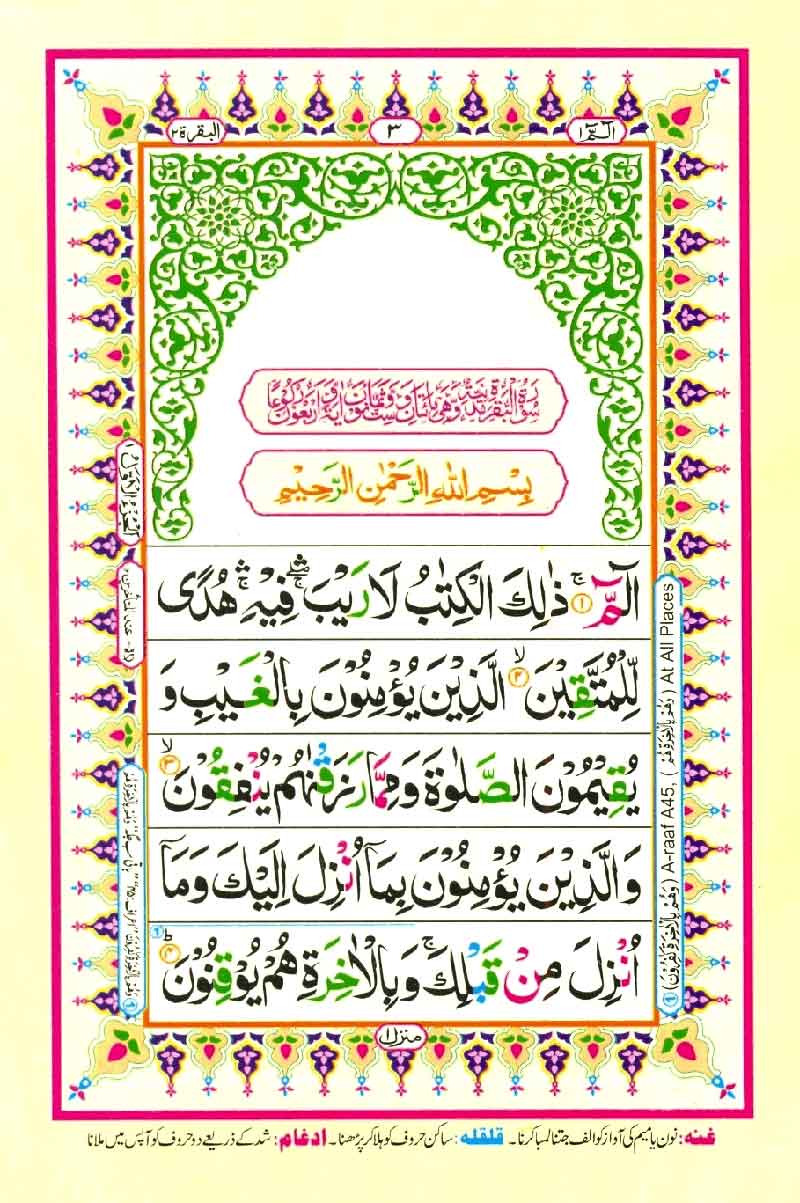 الٓمّٓ ١
٣
البقرة ٢
بِسْمِ اللّٰهِ الرَّحْمٰنِ الرَّحِيْمِ
الٓمّٓ ۚ﴿۱﴾ ذٰلِكَ الْكِتٰبُ لَا رَيْبَ ۛۖ فِيْهِ ۛۚ هُدًى
لِّلْمُتَّقِيْنَ ۙ﴿۲﴾ الَّذِيْنَ يُؤْمِنُوْنَ بِالْغَيْبِ وَ
يُقِيْمُوْنَ الصَّلٰوةَ وَمِمَّا رَزَقْنٰهُمْ يُنْفِقُوْنَ ۙ﴿۳﴾
وَالَّذِيْنَ يُؤْمِنُوْنَ بِمَاۤ اُنْزِلَ اِلَيْكَ وَمَاۤ
اُنْزِلَ مِنْ قَبْلِكَ ۚ وَبِالْاٰخِرَةِ هُمْ يُوْقِنُوْنَ ؕ﴿۴﴾
At All Places
A-raaf A45, (وَهُمْ بِالْاٰخِرَةِ كٰفِرُوْنَ)
منزل ١
غنہ: نون یا میم کی آواز کو الف جتنا لمبا کرنا۔ قلقلہ: ساکن حروف کو ہلا کر پڑھنا۔ ادغام: شد کے ذریعے دو حروف کو آپس میں ملانا